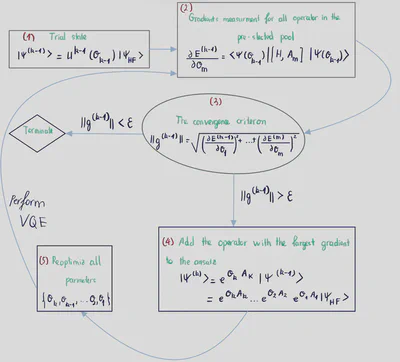 (1) Trial state
|Ψ^(k-1)> = U^(k-1)(θ_k-1)|Ψ_HF>
(2)
Gradients measurment for all operator in the
pre-selected pool
∂E^(k-1)/∂θ_m = <Ψ(θ_k-1)|[H, A_m]|Ψ(θ_k-1)>
(3)
The convergence criterion
||g^(k-1)|| = √((∂E^(k-1)/∂θ_1)² + ... + (∂E^(m)/∂θ_m)²)
||g^(k-1)|| < ε
Terminate
||g^(k-1)|| > ε
(4) Add the operator with the largest gradient
to the ansatz
|Ψ^(k)> = e^θ_k A_k |Ψ^(k-1)>
= e^θ_k A_k ... e^θ_2 A_2 e^θ_1 A_1 |Ψ_HF>
(5) Reoptimize all
parameters
{θ_k, θ_k-1, ... θ_2, θ_1}
Perform
VQE